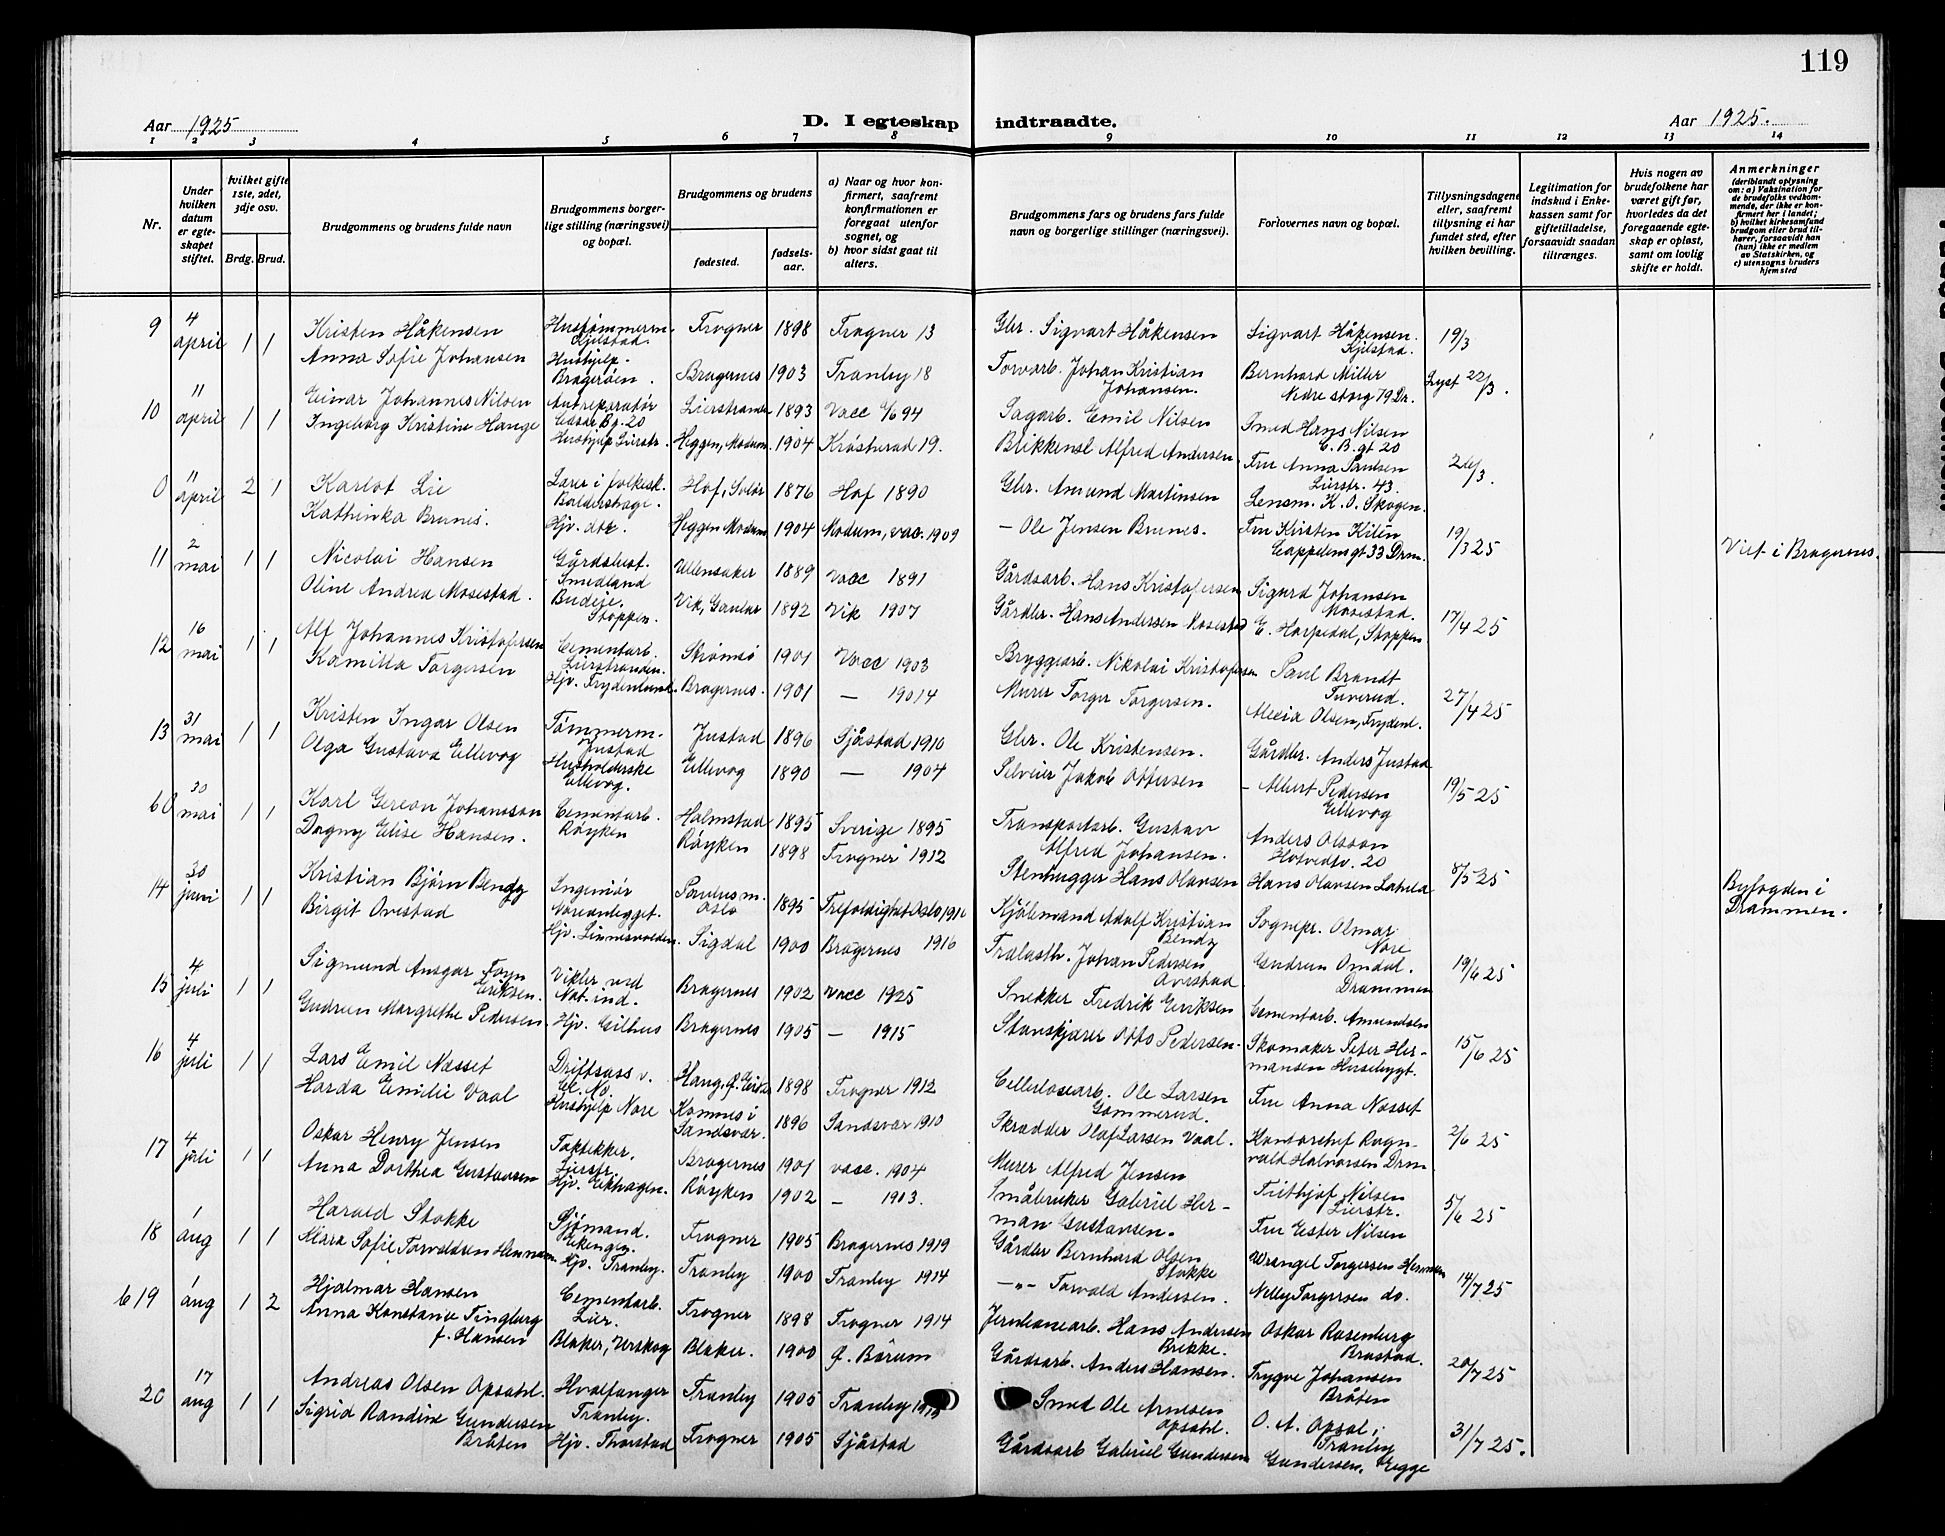 119
Aar 1925
D. I egteskap indtraadte.
Aar 1925.
1 2 3 4 5 6 7 8 9 10 11 12 13 14
Nr.
Under hvilken datum er egteskapet stiftet.
hvilket gifte 1ste, 2det, 3dje osv.
Brdg. Brud.
Brudgommens og brudens fulde navn
Brudgommens borgerlige stilling (næringsvei) og bopæl.
Brudgommens og brudens
fødested.
fødselsaar.
a) Naar og hvor konfirmert, saafremt konfirmationen er foregaat utenfor sognet, og
b) hvor sidst gaat til alters.
Brudgommens fars og brudens fars fulde navn og borgerlige stillinger (næringsvei).
Forlovernes navn og bopæl.
Tillysningsdagene eller, saafremt tillysning ei har fundet sted, efter hvilken bevilling.
Legitimation for indskud i Enkekassen samt for giftetilladelse, forsaavidt saadan tiltrænges.
Hvis nogen av brudefolkene har været gift før, hvorledes da det foregaaende egteskap er opløst, samt om lovlig skifte er holdt.
Anmerkninger
(deriblandt oplysning om: a) Vaksination for de brudefolks vedkommende, der ikke er konfirmert her i landet; b) hvilket kirkesamfund brudgom eller brud tilhører, forsaavidt han (hun) ikke er medlem av Statskirken, og c) utensogns bruders hjemsted
9 4 april 1 1 Kristen Håkensen Hustømmerm. Kjilstad. Frogner 1898 Frogner 13 Gbr. Sigvart Håkensen Sigvart Håkensen. Kjilstad. 19/3
Anna Sofie Johansen Hushjelp. Bragerøen. Bragernes 1903 Tranby 18 Torvarb. Johan Kristian Johansen. Bernhard Miller Nedre storg 19 Dr. Lyst 22/3.
10 11 april 1 1 Einar Johannes Nilsen Autreparatør Lierstranden 1893 Vacc 94 Sagarb. Emil Nilsen Smed Hans Nilsen E. B. gt 20
Ingeborg Kristine Hauge Hushjelp Lierstr. Heggen, Modum 1904 Krødsherad 19. Blikkensl Alfred Andersen Fru Anna Paulsen Lierstr. 43. 26/3
0 11 april 2 1 Karlot Lie Lærer i folkesk. Baldershage. Hof, Solør 1876 Hof 1890 Gbr. Amund Martinsen Lensm. K. O. Skogen.
Kathinka Brunes. Hjv. Heggen Modum 1904 Modum, vac. 1909 — Ole Jensen Brunes. Fru Kristen Kilén Cappelensgt 33 Drm. 19/3 25
11 2 mai 1 1 Nicolai Hansen Gårdsbest. Smedland Ullensaker 1889 Vacc 1891 Gårdsarb. Hans Kristofersen Sigurd Johansen Mosestad. Viet i Bragernes.
Oline Andrea Mosestad. Budeje. Stoppen. Vik, Gaular 1892 Vik 1907 Gårdbr. Hans Andersen Mosestad E. Horpedal, Stoppen 17/4 25
12 16 mai 1 1 Alf Johannes Kristofersen Cementarb. Lierstranden. Strømsø 1901 Vacc 1903 Bryggearb. Nikolai Kristofersen Paul Brandt Tuverud.
Kamilla Torgersen Hjv. Frydenlund. Bragernes. 1901 — 19014 Murer Torger Torgersen. Alexia Olsen, Frydenl. 27/4 25
13 31 mai 1 1 Kristen Ingar Olsen Tømmerm. Justad Justad 1896 Sjåstad 1910 Gbr. Ole Kristensen. Gårdbr. Anders Justad
Olga Gustava Ellevog Husholderske Ellevog. Ellevog 1890 — 1904 Selveier Jakob Ottersen — Albert Pedersen Ellevog 19/5 25
60 30 mai 1 1 Karl Gereon Johansson Cementarb. Røyken Halmstad 1895 Sverige 1895 Transportarb. Gustav Alfred Johansen. Anders Olsson Hotvedtv. 20
Dagny Elise Hansen. Røyken 1898 Frogner 1912 Stenhugger Hans Olavsen Hans Olavsen 8/5 25
14 30 juni 1 1 Kristian Bjørn Bendz Ingeniør Noreanlegget. Paulus m. Oslo 1895 Trefoldighet Oslo 1910 Kjøbmand Adolf Kristian Bendz Sognepr. Olmar Nore Byfogden i Drammen.
Birgit Ovestad Hjv. Linnesvolden. Sigdal 1900 Bragernes 1916 Trælasth. Johan Pedersen Ovestad Gudrun Omdal. Drammen 19/6 25
15 4 juli 1 1 Sigmund Ansgar Foyn Eriksen. Vikler ved Nat. ind. Bragernes 1902 Vacc 1925 Snekker Fredrik Eeriksen Cementarb. Amundsen
Gudrun Margrethe Pedersen. Hjv. Gilhus Bragernes 1905 — 1915 Stanskjærer Otto Pedersen. Skomaker Peter Hermansen Husebygt. 15/6 25
16 4 juli 1 1 Lars Emil Næsset Driftsass v. Haug, 1898 Frogner 1912 Cellulosearb. Ole Larsen Gommerud. Fru Anna Næsset
Harda Emilie Vaal Hushjelp Nore Komnes i Sandsvær. 1896 Sandsvær 1910 Skrædder Olaf Larsen Vaal. Kontorchef Ragnvald Halvorsen Drm 2/6 25
17 4 juli 1 1 Oskar Henry Jensen Taktekker. Lierstr. Bragernes 1901 vacc. 1904 Murer Alfred Jensen Frithjof Nilsen Lierstr.
Anna Dorthea Gustavsen Hjv. Eikhagen. Røyken 1902 — 1903. Småbruker Gabriel Herman Gustavsen. Fru Ester Nilsen 5/6 25
18 1 aug 1 1 Harald Stokke Sjømand. Frogner 1905 Bragernes 1919 Gårdbr Bernhard Olsen Stokke Wrangel Torgersen
Klara Sofie Torvaldsen Hennum Hjv. Tranby. Tranby 1900 Tranby 1914 —"— Torvald Andersen. Nelly Torgersen do. 14/7 25
6 19 1 aug 1 2 Hjalmar Hansen Cementarb. Lier. Frogner 1898 Frogner 1914 Jernbanearb. Hans Andersen Brekke. Oskar Rosenburg Brastad.
Anna Konstanse Tingberg f. Hansen Blaker, Urskog Blaker. 1900 Ø. Bærum Gårdsarb. Anders Hansen. Trygve Johansen Bråten 20/7 25
20 17 aug 1 1 Andreas Olsen Opsahl. Hvalfanger Tranby. Tranby 1905 Tranby Smed Ole Arnesen Opsahl. O. A. Opsal i Tranby
Sigrid Randine Gundersen Bråten Hjv. Thorstad Frogner 1905 Sjåstad Gårdsarb Gabriel Gundersen Gundersen, Egge 31/7 25.